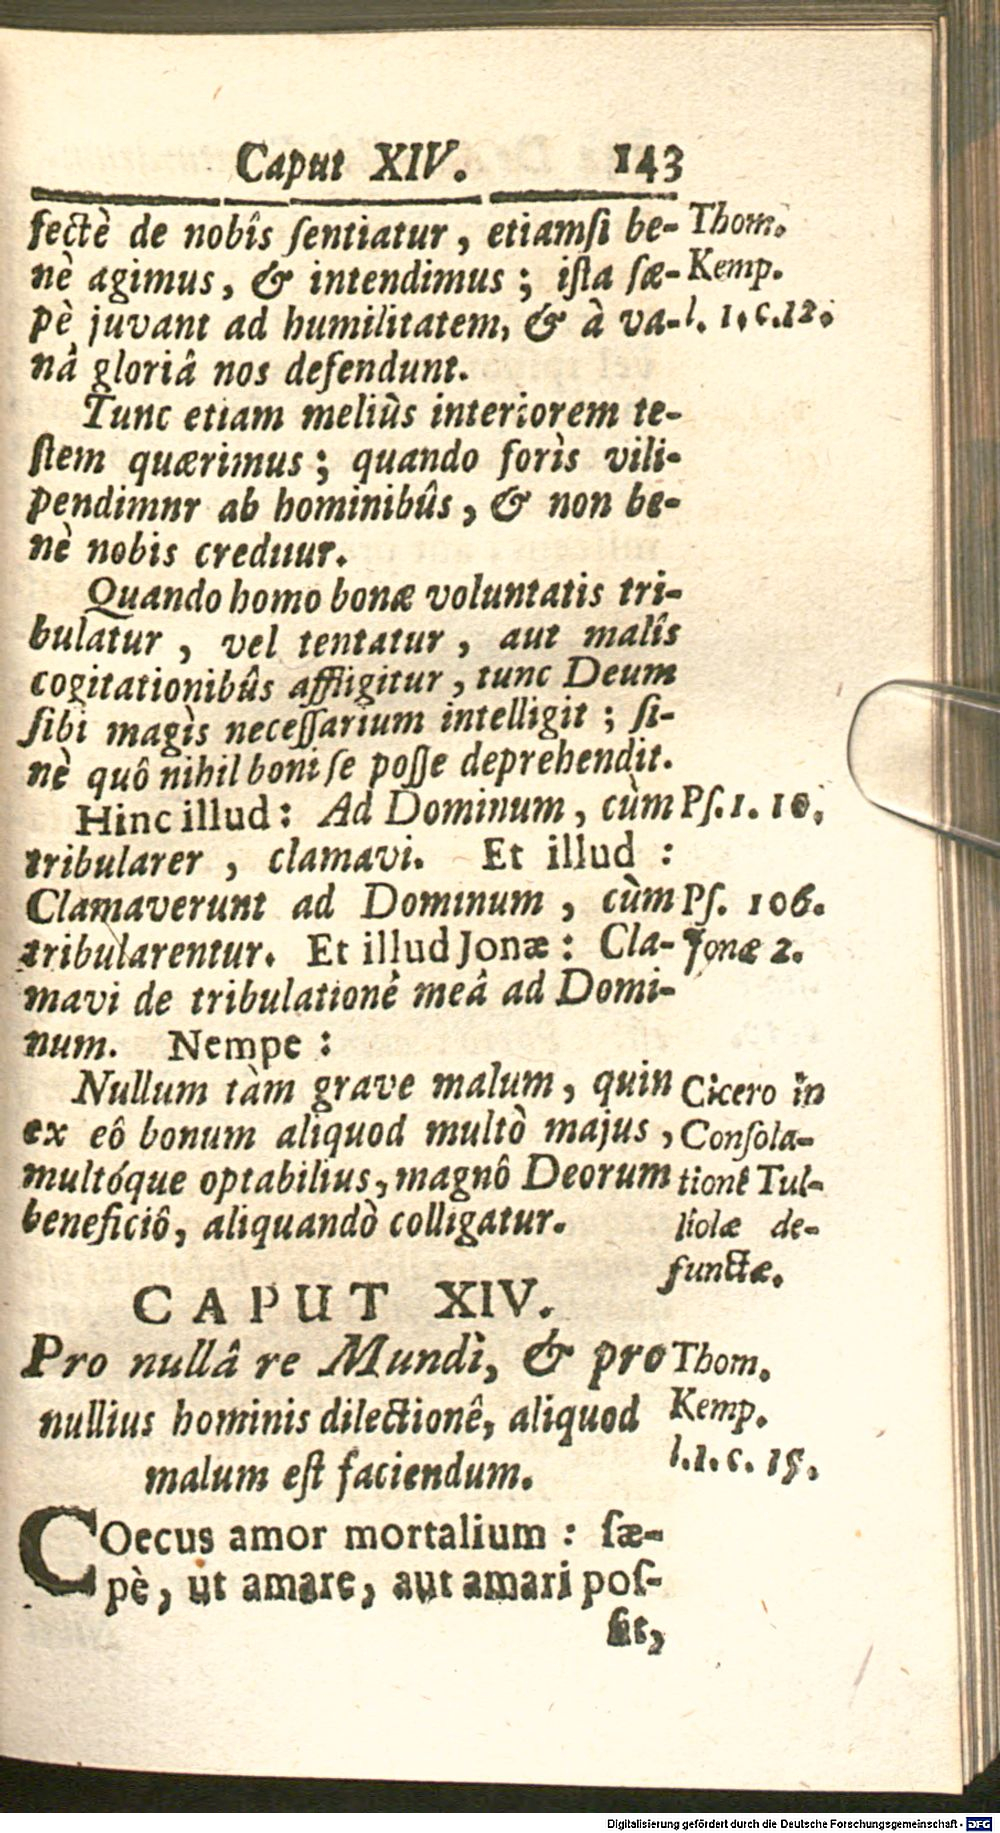 Caput XIV. 143
fectè de nobîs ſentiatur, etiamſi be- Thom.
nè agimus, & intendimus; iſta ſæ- Kemp.
pè juvant ad humilitatem, & à va- l. 1. c. 12.
nâ gloriâ nos defendunt.
Tunc etiam meliùs interiorem te-
ſtem quærimus; quando forìs vili-
pendimnr ab hominibûs, & non be-
nè nobis creduur.
Quando homo bonæ voluntatis tri-
bulatur, vel tentatur, aut malîs
cogitationibûs affligitur, tunc Deum
ſibi magìs neceſſarium intelligit; ſi-
nè quô nihil boni ſe poſſe deprehendit.
Hinc illud: Ad Dominum, cùm Pſ. 1. 10.
tribularer, clamavi. Et illud:
Clamaverunt ad Dominum, cùm Pſ. 106.
tribularentur. Et illud Jonæ: Cla- Jonæ 2.
mavi de tribulationê meâ ad Domi-
num. Nempe:
Nullum tàm grave malum, quin Cicero in
ex eô bonum aliquod multò majus, Conſola-
multóque optabilius, magnô Deorum tionê Tul-
beneficiô, aliquandò colligatur. liolæ de-
functæ.
CAPUT XIV.
Pro nullâ re Mundi, & pro Thom.
nullius hominis dilectionê, aliquod Kemp.
malum eſt faciendum. l. 1. c. 15.
COecus amor mortalium: ſæ-
pè, ut amare, aut amari poſ-
ſit,
Digitalisierung gefördert durch die Deutsche Forschungsgemeinschaft - DFG